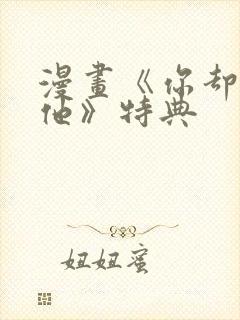 漫畫《你却
他》特典
妞妞蜜